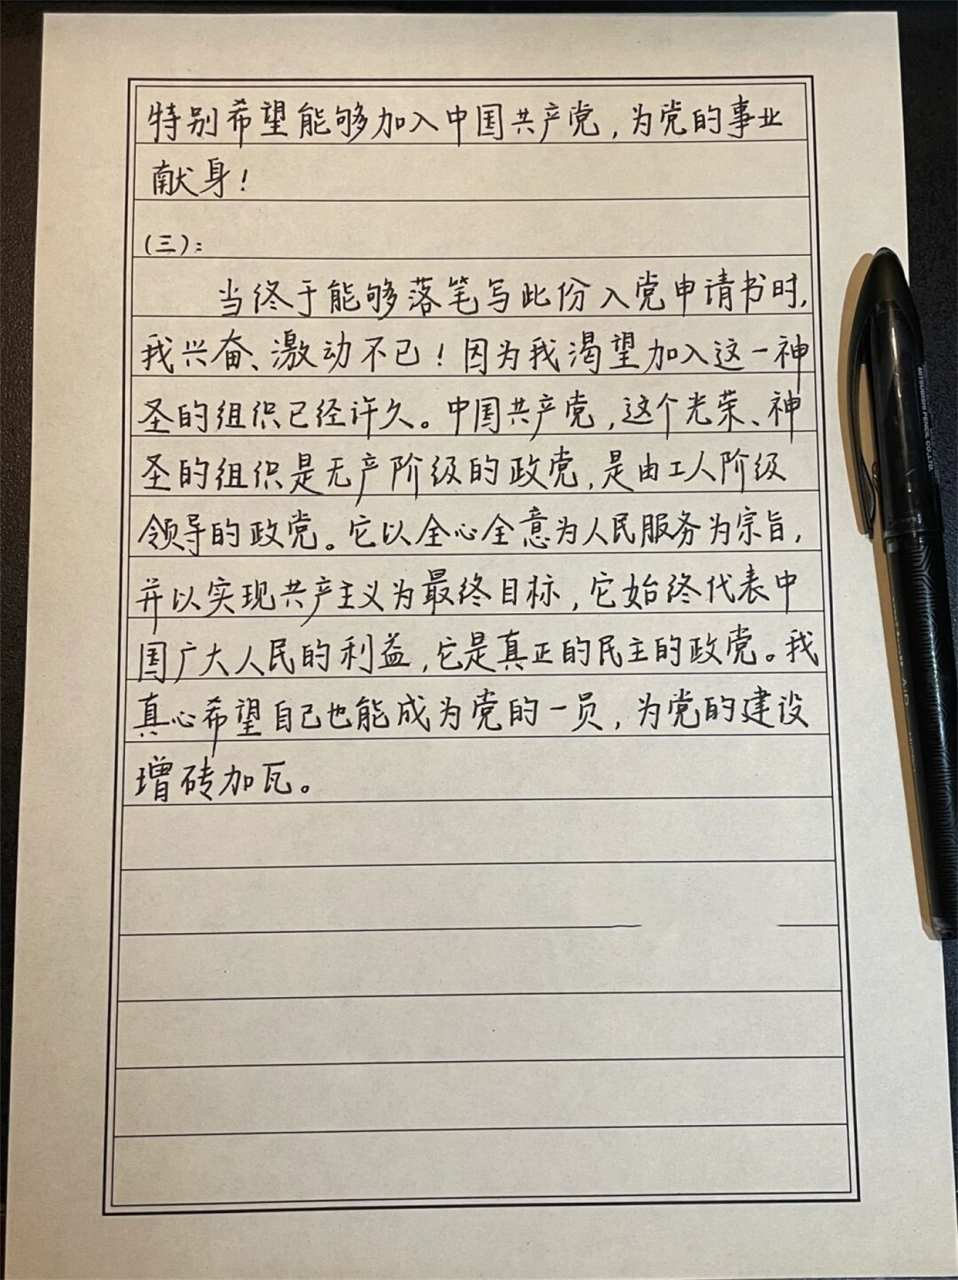 特别希望能够加入中国共产党，为党的事业
献身！
（三）：
当终于能够落笔写此份入党申请书时，
我兴奋、激动不已！因为我渴望加入这一神
圣的组织已经许久。中国共产党，这个光荣、神
圣的组织是无产阶级的政党，是由工人阶级
领导的政党。它以全心全意为人民服务为宗旨，
并以实现共产主义为最终目标，它始终代表中
国广大人民的利益，它是真正的民主的政党。我
真心希望自己也能成为党的一员，为党的建设
增砖加瓦。
MITSUBISHI PENCIL CO., LTD.